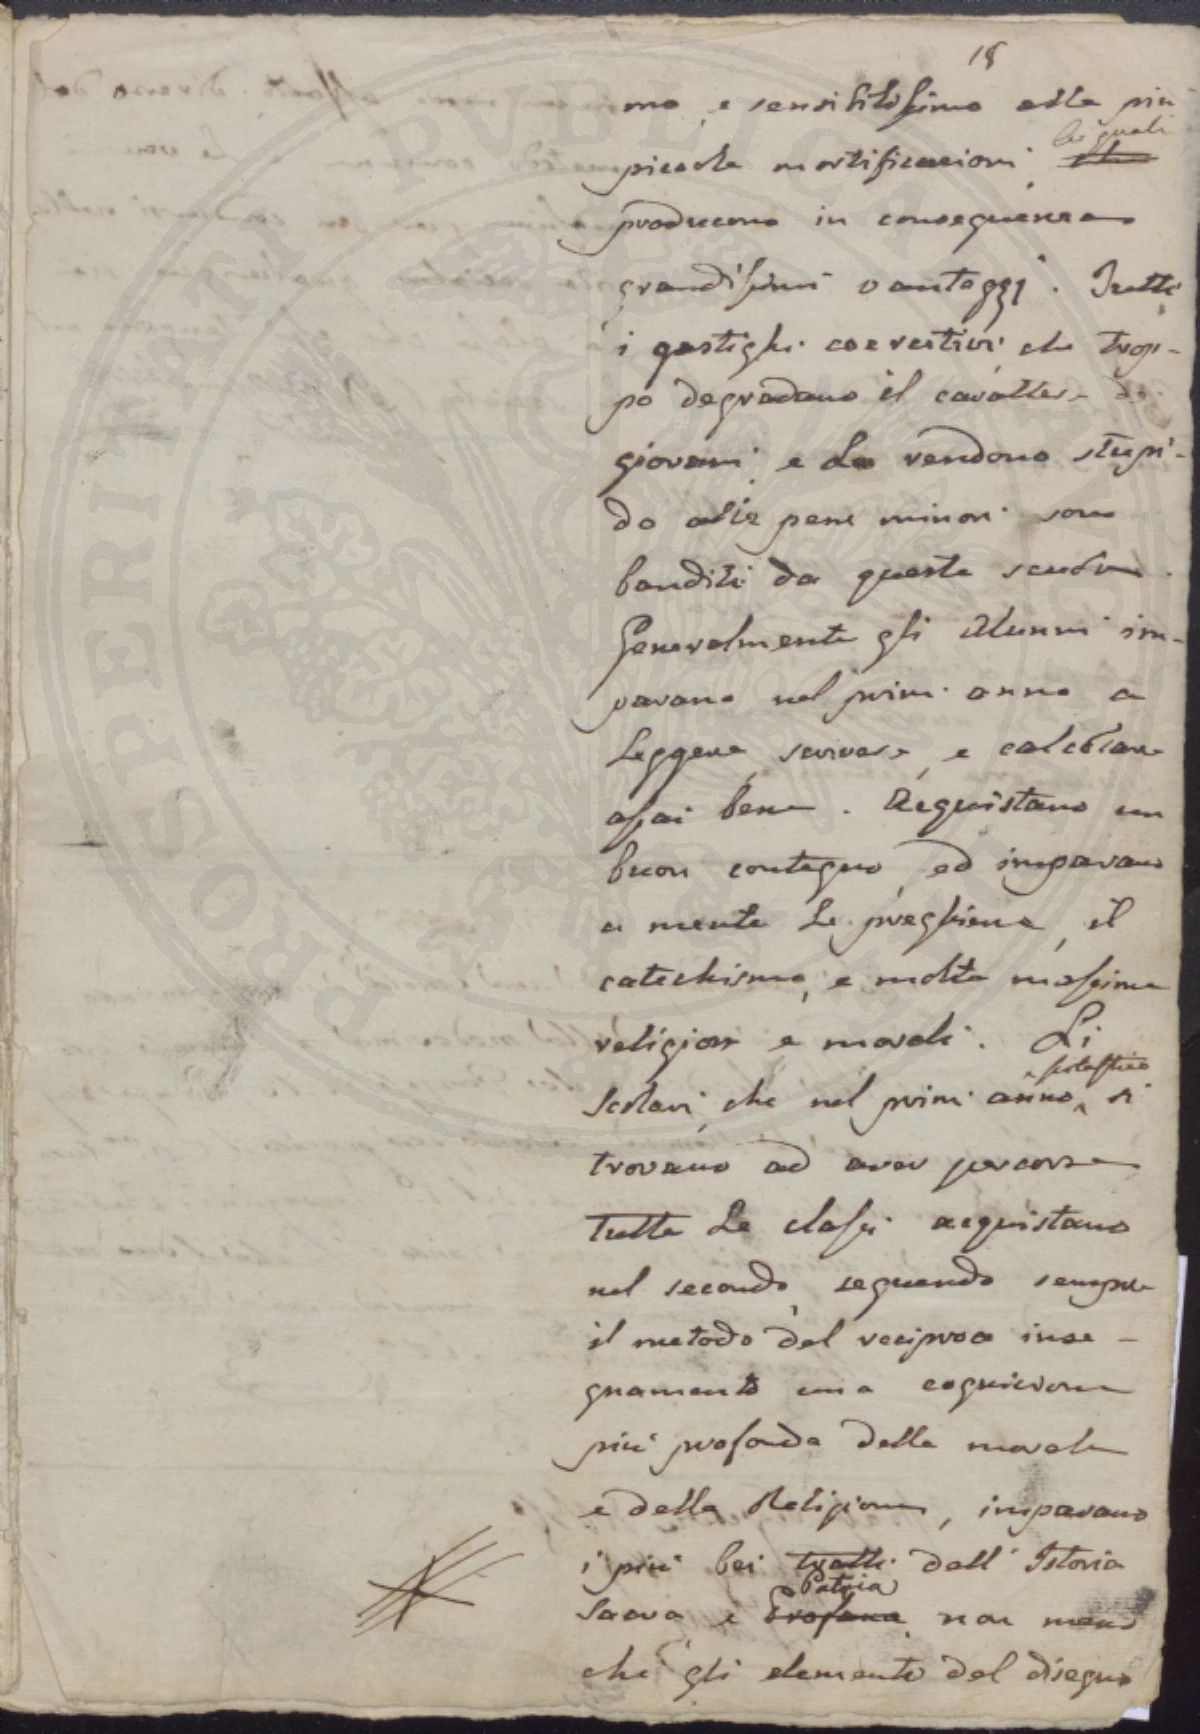 18
mo, e sensibilissimo alle più
piccole mortificazioni, le quali
producono in conseguenza
grandissimi vantaggi. Tutti
i gastighi coercitivi, che trop-
po degradano il carattere de
giovani, e Lo rendono stupi-
do alle pene minori sono
banditi da queste scuole.
Generalmente gli Alunni im-
parano nel primo anno a
Leggere, scrivere, e calcolare
assai bene. Acquistano un
buon contegno, ed imparano
a mente Le preghiere, il
catechismo, e molte massime
religiose e morali. Li
scolastico
Scolari, che nel primo anno si
trovano ad aver percorse
tutte Le classi acquistano
nel secondo, seguendo sempre
il metodo del reciproco inse-
gnamento una cognizione
più profonda della morale
e della Religione, imparano
i più bei tratti dell'Istoria
Patria
Sacra, e Profana, non meno
che gli elementi del disegno
PROSPERITATI PVBLICAE